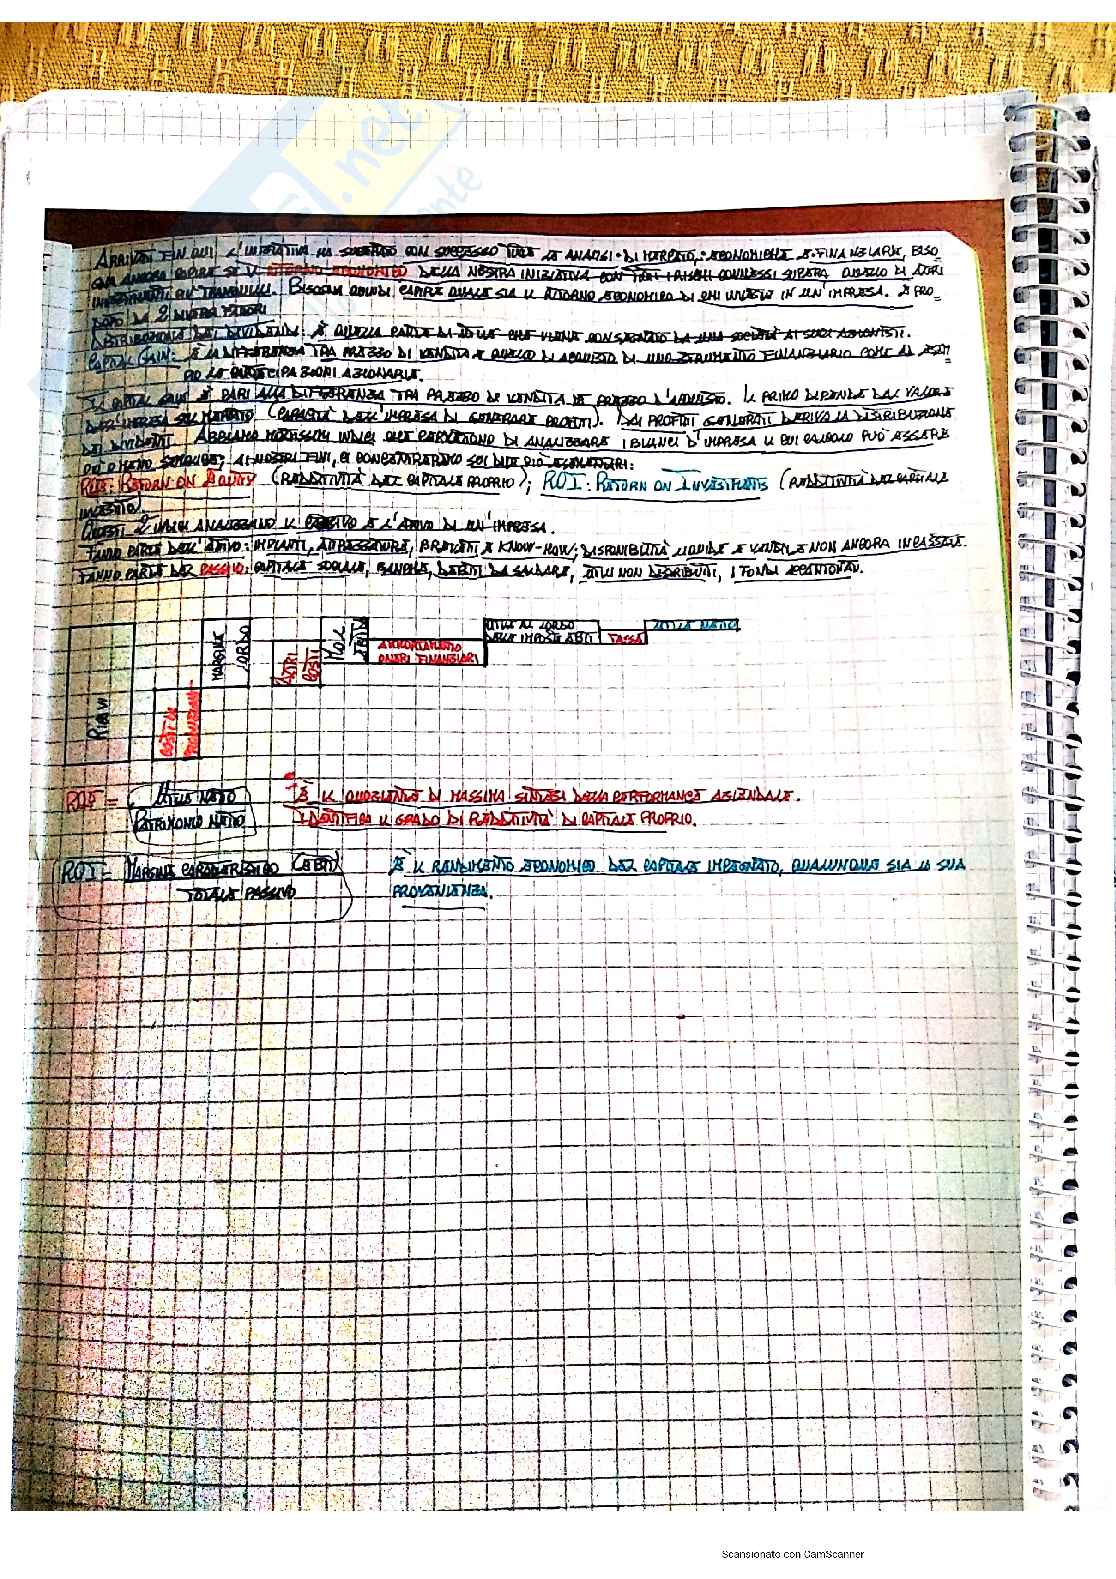 ARRIVATI FIN QUI L'INIZIATIVA HA SUPERATO CON SUCCESSO TUTTE LE ANALISI: DI MERCATO, ECONOMICHE E FINANZIARIE, BISO_
GNA ANCORA CAPIRE SE IL RITORNO ECONOMICO DELLA NOSTRA INIZIATIVA CON TUTTI I RISCHI CONNESSI SUPERA QUELLO DI ALTRI
INVESTIMENTI PIU' TRANQUILLI. BISOGNA QUINDI CAPIRE QUALE SIA IL RITORNO ECONOMICO DI CHI INVESTE IN UN'IMPRESA. È PRO_
DOTTO DA 2 DIVERSI FATTORI
DISTRIBUZIONE DEI DIVIDENDI: È QUELLA PARTE DI UTILE CHE VIENE CONSEGNATO DA UNA SOCIETÀ AI SUOI AZIONISTI.
CAPITAL GAIN: È LA DIFFERENZA TRA PREZZO DI VENDITA E QUELLO DI ACQUISTO DI UNO STRUMENTO FINANZIARIO COME AD ESEM_
PIO LE PARTECIPAZIONI AZIONARIE.
IL CAPITAL GAIN È PARI ALLA DIFFERENZA TRA PREZZO DI VENDITA E PREZZO D'ACQUISTO. IL PRIMO DIPENDE DAL VALORE
DELL'IMPRESA SUL MERCATO (CAPACITÀ DELL'IMPRESA DI GENERARE PROFITTI). DAI PROFITTI GENERATI DERIVA LA DISTRIBUZIONE
DEI DIVIDENDI. ABBIAMO MOLTISSIMI INDICI CHE PERMETTONO DI ANALIZZARE I BILANCI D'IMPRESA IL CUI CALCOLO PUÒ ESSERE
PIÙ O MENO SEMPLICE; AI NOSTRI FINI, CI CONCENTREREMO SUI DUE PIÙ ESSENZIALI:
ROE: RETURN ON EQUITY (REDDITIVITÀ DEL CAPITALE PROPRIO); ROI: RETURN ON INVESTMENTS (REDDITIVITÀ DEL CAPITALE
INVESTITO).
QUESTI 2 INDICI ANALIZZANO IL PASSIVO E L'ATTIVO DI UN'IMPRESA.
FANNO PARTE DELL'ATTIVO: IMPIANTI, ATTREZZATURE, BREVETTI E KNOW-HOW, DISPONIBILITÀ LIQUIDE E VENDITE NON ANCORA INCASSATE.
FANNO PARTE DEL PASSIVO: CAPITALE SOCIALE, BANCHE, DEBITI DA SALDARE, UTILI NON DISTRIBUITI, I FONDI ACCANTONATI.
RICAVI
COSTI DI PRODUZIONE
MARGINE LORDO
ALTRI COSTI
MOL
EBITDA
AMMORTAMENTO
ONERI FINANZIARI
UTILE AL LORDO
DELLE IMPOSTE (EBT)
TASSE
UTILE NETTO
ROE = UTILE NETTO
PATRIMONIO NETTO
È IL QUOZIENTE DI MASSIMA SINTESI DELLA PERFORMANCE AZIENDALE.
IDENTIFICA IL GRADO DI REDDITIVITÀ DI CAPITALE PROPRIO.
ROI = MARGINE CARATTERISTICO (EBIT)
TOTALE PASSIVO
È IL RENDIMENTO ECONOMICO DEL CAPITALE IMPEGNATO, QUALUNQUE SIA LA SUA
PROVENIENZA.
Scansionato con CamScanner